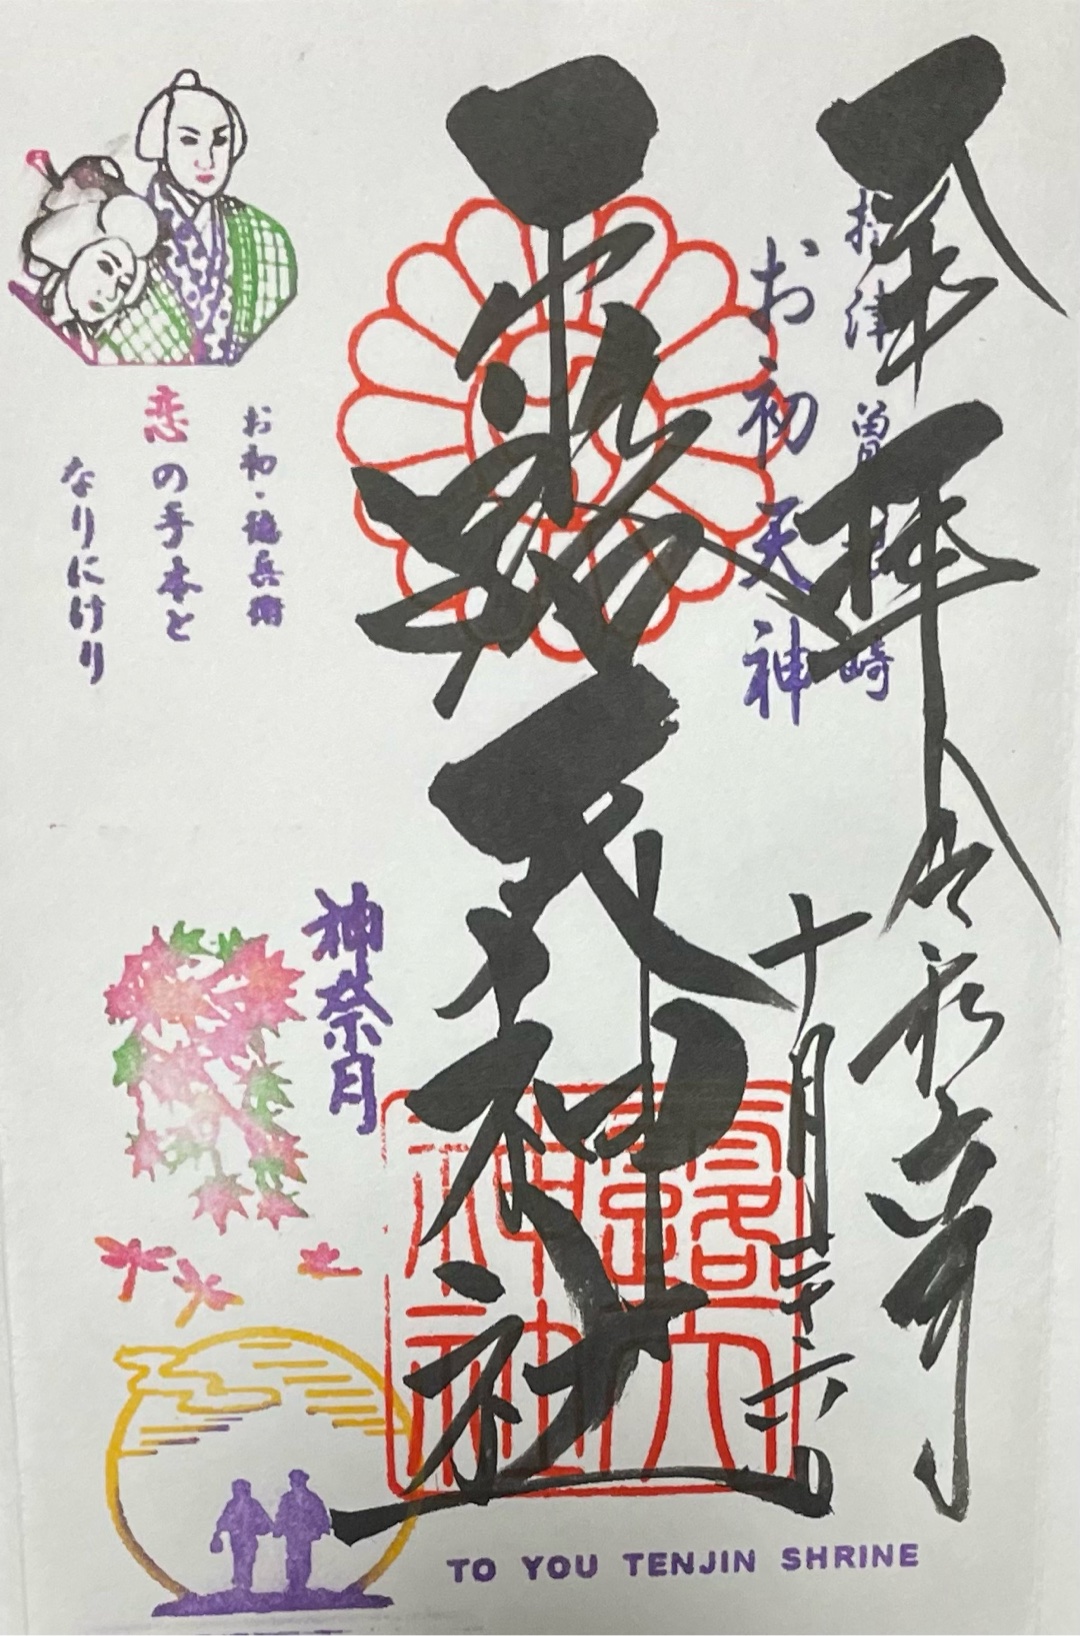 奉拝 令和六年
摂津 曽根崎
お初天神
十月二十六日
露天神社
露天神社
お初・徳兵衛
恋の手本と
なりにけり
神奈月
TO YOU TENJIN SHRINE